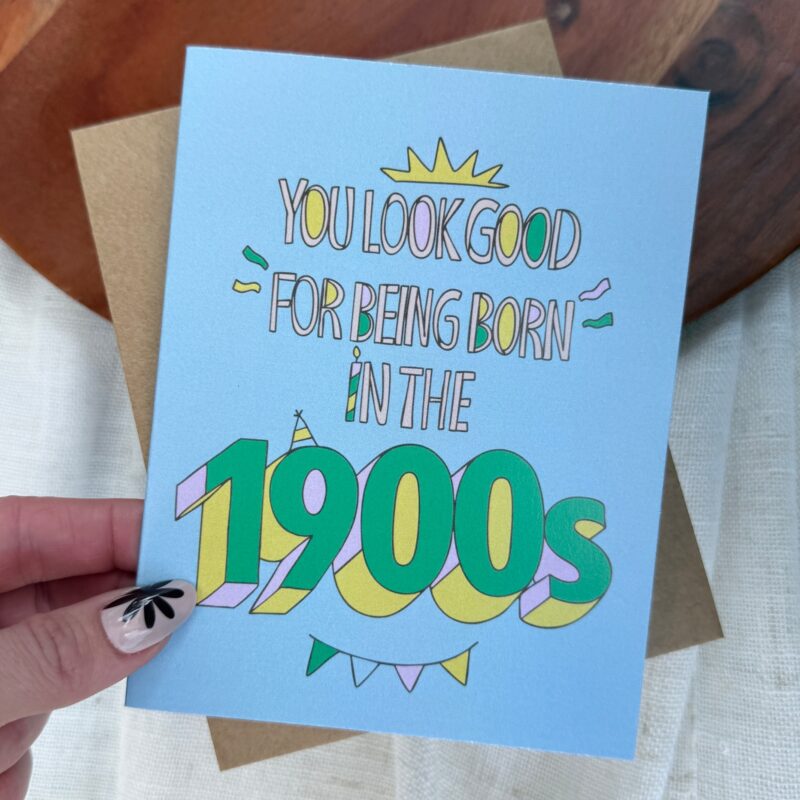 YOU LOOK GOOD
FOR BEING BORN
IN THE
1900s